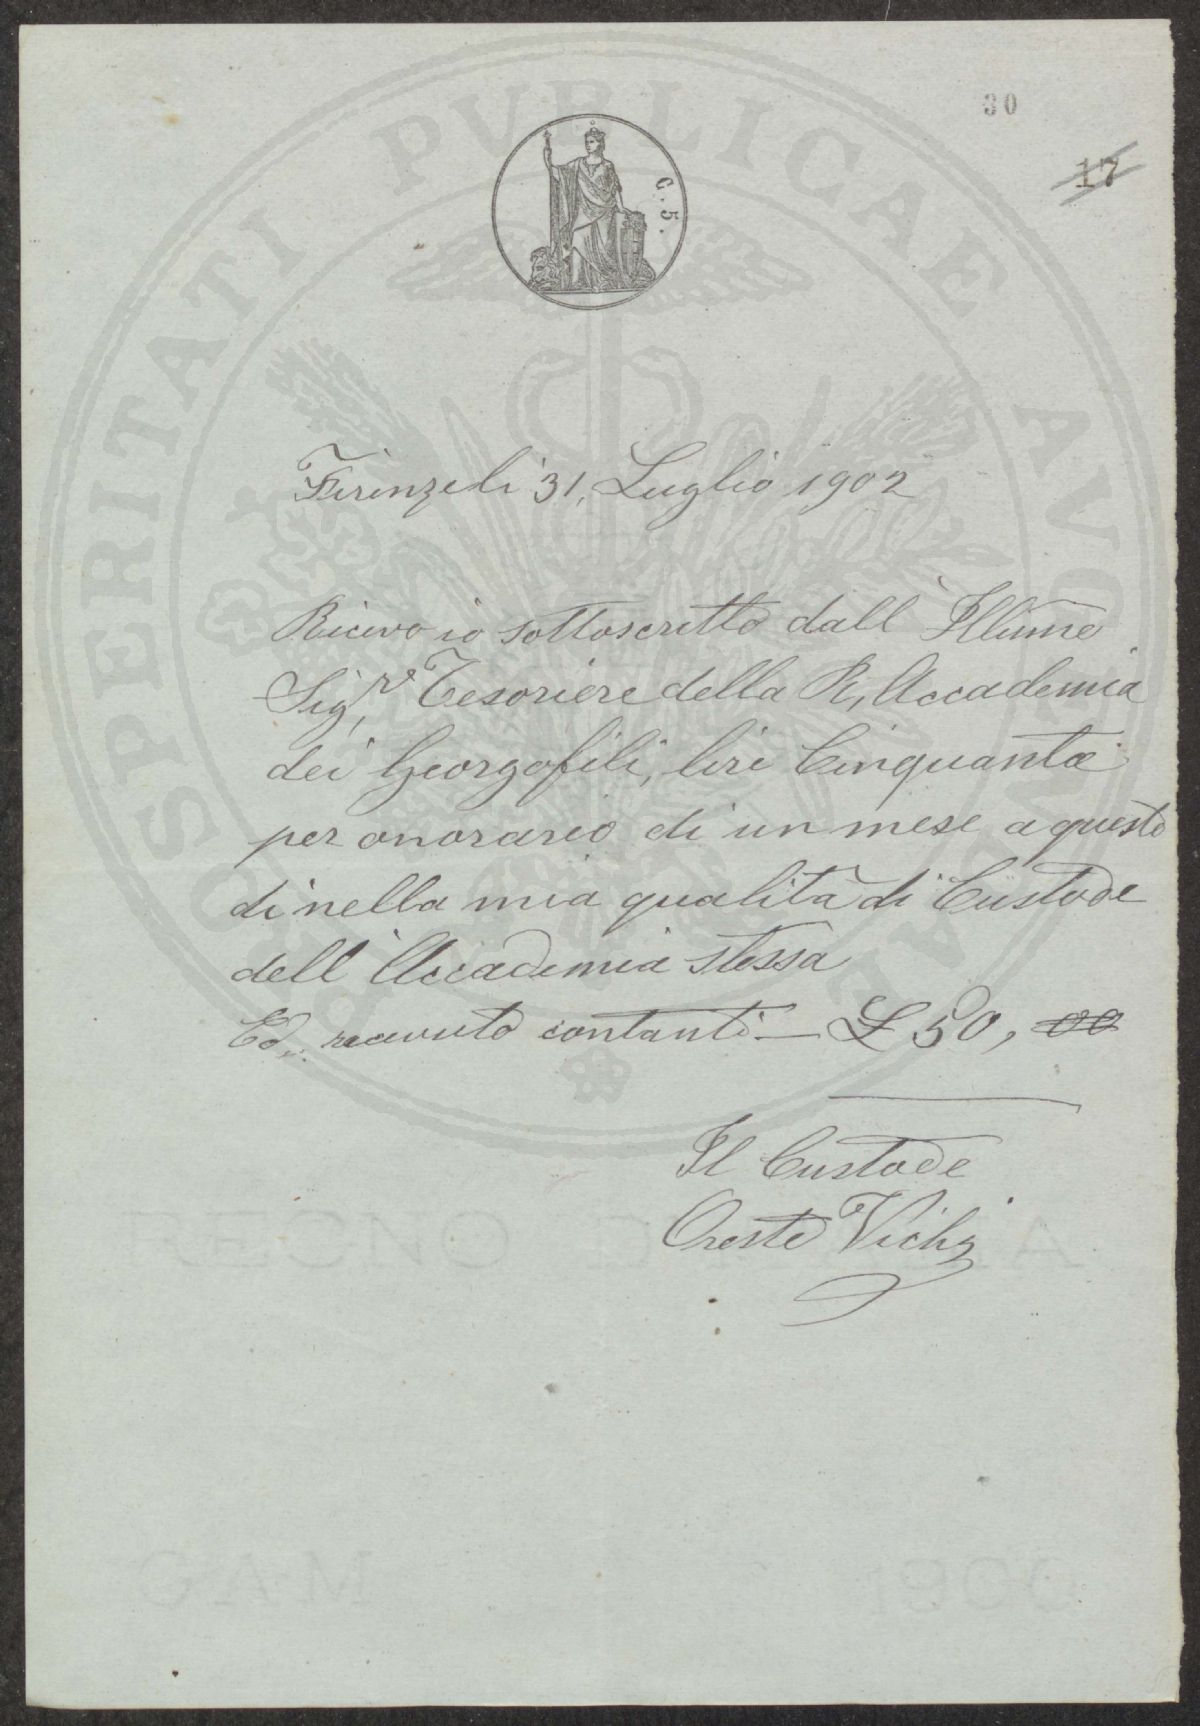 30
17
C. 5.
PROSPERITATI PUBLICAE AUGENDAE
Firenze li 31, Luglio 1902
Ricevo io sottoscritto dall' Illumo
Sig,r Tesoriere della R, Accademia
dei Georgofili, lire Cinquanta
per onorario di un mese a questo
di nella mia qualità di Custode
dell'Accademia stessa
Ed. ricevuto contanti — £ 50, 00
Il Custode
Oreste Vichi
1900 MAG